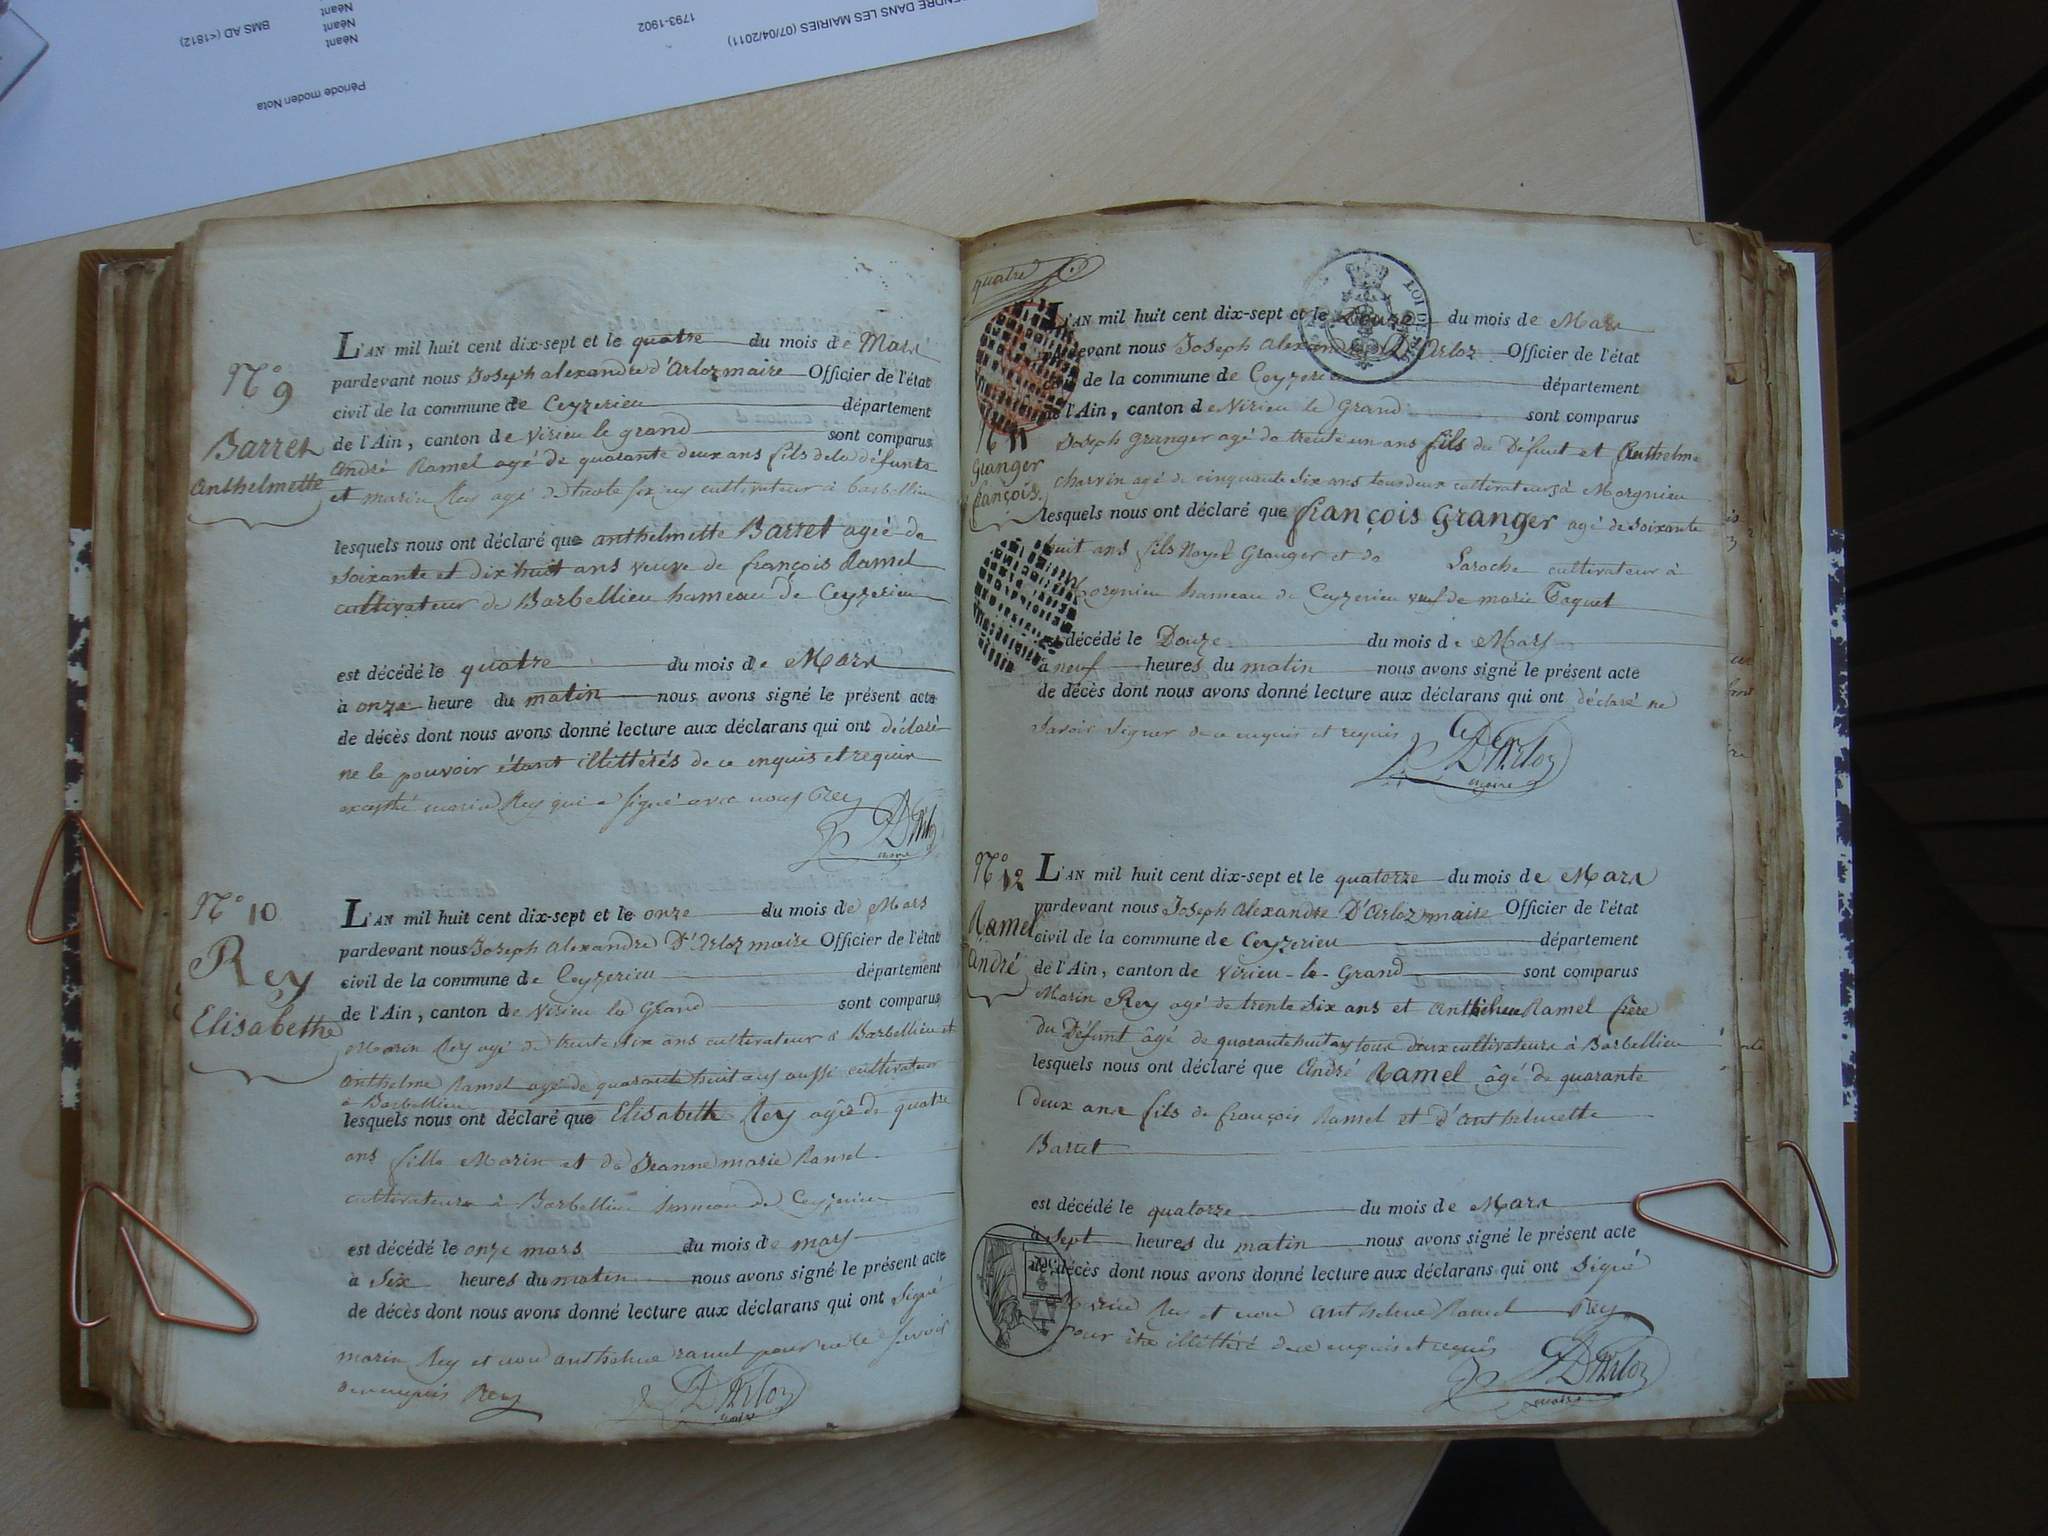 ENDRE DANS LES MAIRIES (07/04/2011)
1793-1902
BMS AD (<1812)
Néant
Néant
Néant
Période moden Nota
N° 9
Barret
anthelmette
L'AN mil huit cent dix-sept et le quatre du mois de Mars
pardevant nous Joseph alexandre d'Arloz maire Officier de l'état
civil de la commune de Ceyzerieu département
de l'Ain, canton de Virieu le grand sont comparus
andré Ramel agé de quarante deux ans fils de la défunte
et marin Rey agé de trente six ans cultivateur à barbellieu
lesquels nous ont déclaré que anthelmette Barret agée de
soixante et dix huit ans veuve de françois Ramel
cultivateur de Barbellieu hameau de Ceyzerieu
est décédé le quatre du mois de Mars
à onze heure du matin nous avons signé le présent acte
de décès dont nous avons donné lecture aux déclarans qui ont déclaré
ne le pouvoir étant illittérés de ce enquis et requis
excepté marin Rey qui a signé avec nous Rey
D'Arloz
maire
N° 10
Rey
Elisabethe
L'AN mil huit cent dix-sept et le onze du mois de Mars
pardevant nous Joseph alexandre D'Arloz maire Officier de l'état
civil de la commune de Ceyzerieu département
de l'Ain, canton de Virieu le Grand sont comparus
Marin Rey agé de trente six ans cultivateur à Barbellieu et
anthelme Ramel agé de quarante huit ans aussi cultivateur
à Barbellieu
lesquels nous ont déclaré que Elisabeth Rey agée de quatre
ans fille Marin et de Jeanne marie Ramel
cultivateurs à Barbellieu hameau de Ceyzerieu
est décédé le onze mars du mois de mars
à Six heures du matin nous avons signé le présent acte
de décès dont nous avons donné lecture aux déclarans qui ont signé
marin Rey et non anthelme ramel pour ne le savoir
de ce enquis Rey
D'Arloz
maire
quatre
N° 11
Granger
françois
L'AN mil huit cent dix-sept et le Douze du mois de Mars
pardevant nous Joseph Alexandre D'Arloz Officier de l'état
civil de la commune de Ceyzerieu département
de l'Ain, canton de Virieu le Grand sont comparus
Joseph Granger agé de trente un ans fils du Défunt et Anthelme
charvin agé de cinquante six ans tous deux cultivateurs à Morgnieu
lesquels nous ont déclaré que françois Granger agé de soixante
huit ans fils Noyel Granger et de Laroche cultivateur à
Morgnieu hameau de Ceyzerieu veuf de marie Taquet
est décédé le Douze du mois de Mars
à neuf heures du matin nous avons signé le présent acte
de décès dont nous avons donné lecture aux déclarans qui ont déclaré ne
savoir signer de ce enquis et requis
D'Arloz
maire
N° 12
Ramel
André
L'AN mil huit cent dix-sept et le quatorze du mois de Mars
pardevant nous Joseph Alexandre D'Arloz maire Officier de l'état
civil de la commune de Ceyzerieu département
de l'Ain, canton de Virieu-le-Grand sont comparus
Marin Rey agé de trente six ans et Anthelme Ramel frère
du Défunt âgé de quarante huit ans tous deux cultivateurs à Barbellieu
lesquels nous ont déclaré que André Ramel âgé de quarante
deux ans fils de françois Ramel et d'anthelmette
Barret
est décédé le quatorze du mois de Mars
à sept heures du matin nous avons signé le présent acte
de décès dont nous avons donné lecture aux déclarans qui ont Signé
Marin Rey et non anthelme Ramel Rey
pour être illittéré de ce enquis et requis
D'Arloz
maire